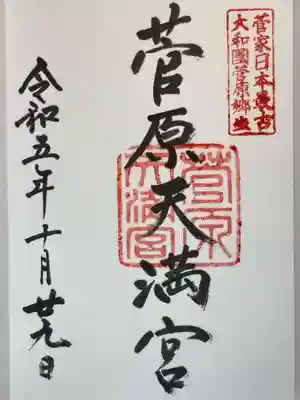 菅家日本最古
大和國菅原郷
菅原天満宮
菅原天満宮
令和五年十月廿九日